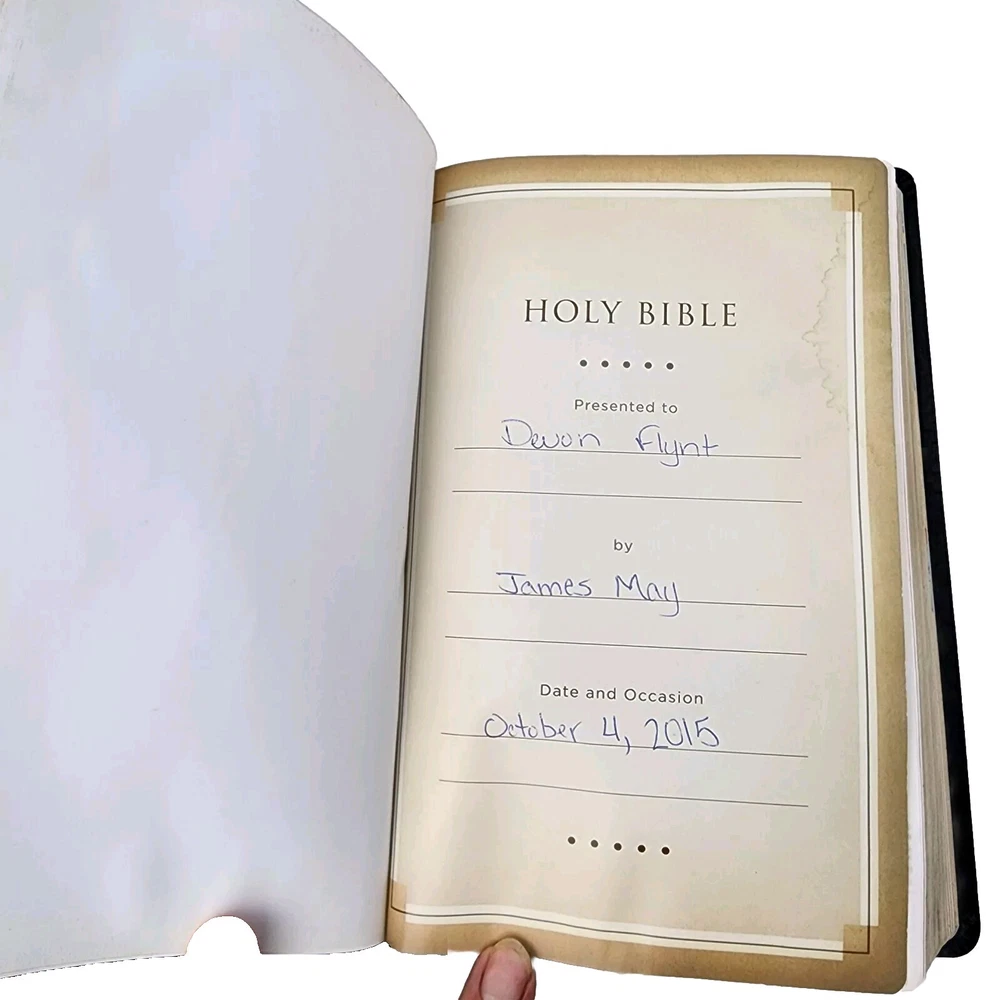 HOLY BIBLE
Presented to
Devon Flynt
by
James May
Date and Occasion
October 4, 2015